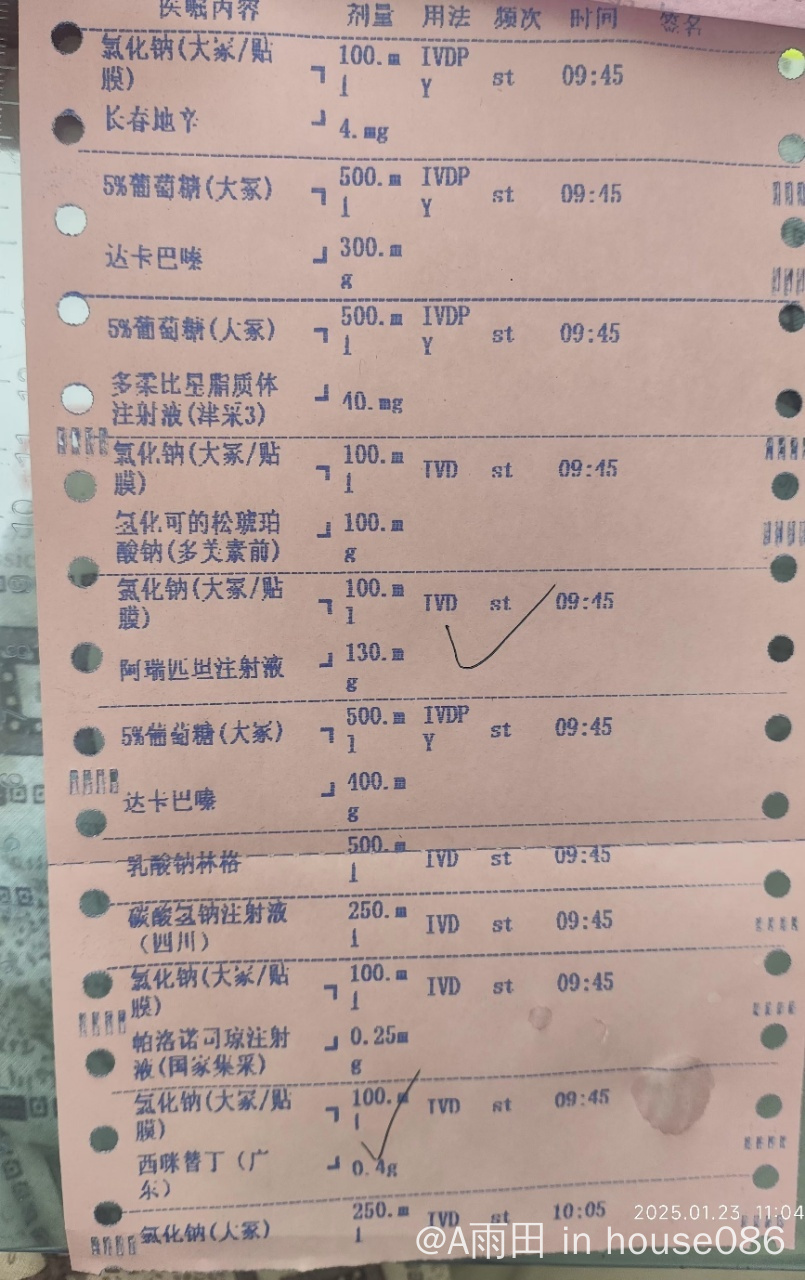 医嘱内容 剂量 用法 频次 时间 签名
氯化钠(大冢/贴 ┐ 100.m IVDP st 09:45
膜) l Y
长春地辛 ┘ 4.mg
5%葡萄糖(大冢) ┐ 500.m IVDP st 09:45
l Y
达卡巴嗪 ┘ 300.m
g
5%葡萄糖(大冢) ┐ 500.m IVDP st 09:45
l Y
多柔比星脂质体 ┘ 40.mg
注射液(津采3)
氯化钠(大冢/贴 ┐ 100.m IVD st 09:45
膜) l
氢化可的松琥珀 ┘ 100.m
酸钠(多美素前) g
氯化钠(大冢/贴 ┐ 100.m IVD st 09:45
膜) l
阿瑞匹坦注射液 ┘ 130.m
g
5%葡萄糖(大冢) ┐ 500.m IVDP st 09:45
l Y
达卡巴嗪 ┘ 400.m
g
乳酸钠林格 500.m IVD st 09:45
l
碳酸氢钠注射液 250.m IVD st 09:45
(四川) l
氯化钠(大冢/贴 ┐ 100.m IVD st 09:45
膜) l
帕洛诺司琼注射 ┘ 0.25m
液(国家集采) g
氯化钠(大冢/贴 ┐ 100.m IVD st 09:45
膜) l
西咪替丁(广 ┘ 0.4g
东)
氯化钠(大冢) 250.m IVD st 10:05
l
2025.01.23 11:04
@A雨田 in house086